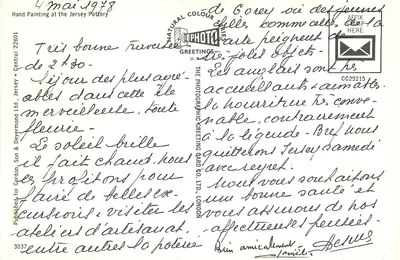 4 mai 1978
Hand Painting at the Jersey Pottery
Très bonne traversée
de 2h30 -
Séjour des plus agré-
ables dans cette île
merveilleuse, toute
fleurie -
Le soleil brille
il fait chaud, nous
en profitons pour
faire de belles ex-
cursions, visiter les
ateliers d'artisanat,
entre autres la poterie
de Gorey où des jeunes
filles comme celles de la
carte peignent de
très jolis objets -
Les anglais sont très
accueillants et aimables
la nourriture très conve-
nable, contrairement
à la légende - Bref nous
quitterons Jersey samedi
avec regret.
Nous vous souhaitons
une bonne santé et
vous assurons de nos
affectueuses pensées -
Bien amicalement
NATURAL COLOUR
PHOTO
GREETINGS
AFFIX
STAMP
HERE
CC29215
THE PHOTOGRAPHIC GREETING CARD CO. LTD., LONDON
Gordon, Son & Deyermond Ltd., Jersey • Central 22601
3037